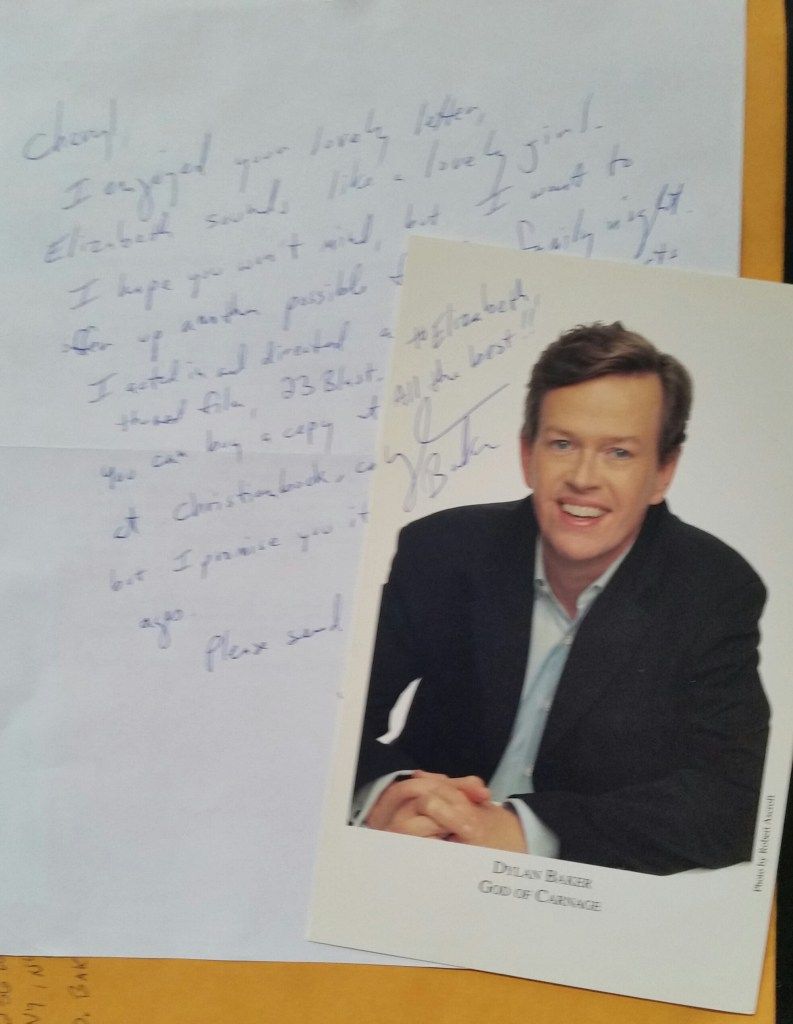 Cheryl,
I enjoyed your lovely letter,
Elizabeth sounds like a lovely girl.
I hope you won't mind, but I want to
up another possible family night.
I acted in and directed a
film, 23 Blast.
you can buy a copy at
at Christianbook.co
but I promise you it
ago.
Please send
to Elizabeth
All the best!!
Baker
DYLAN BAKER
GOD OF CARNAGE
Photo by Robert Ascroft
BAK